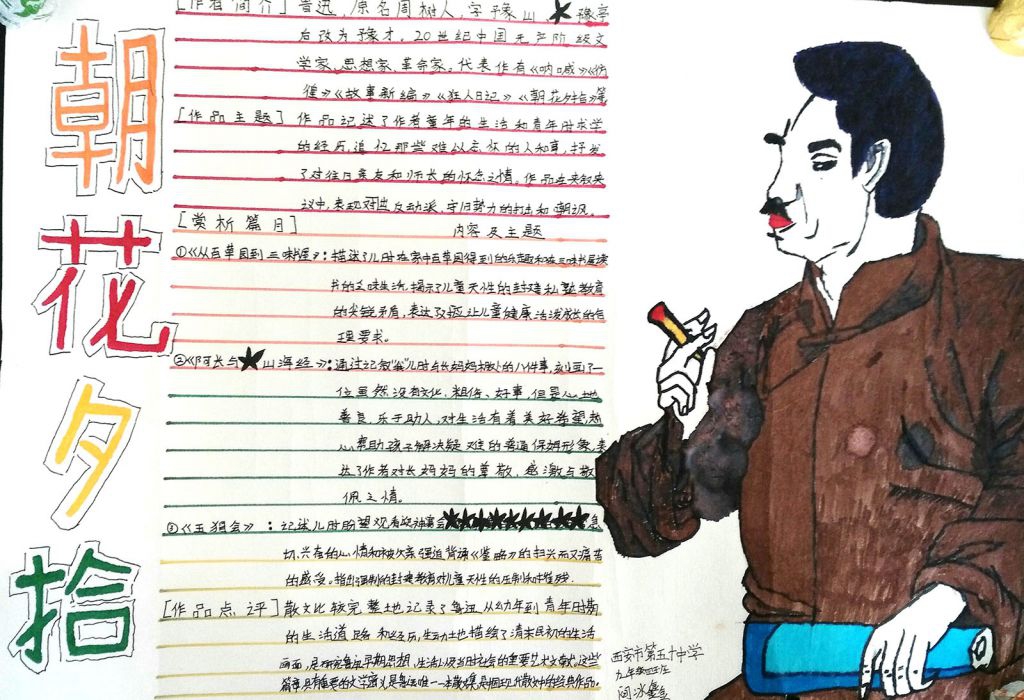 朝花夕拾
[作者简介] 鲁迅,原名周树人,字豫山、豫亭
后改为豫才。20世纪中国无产阶级文
学家、思想家、革命家。代表作有《呐喊》《彷
徨》《故事新编》《狂人日记》《朝花夕拾》等
[作品主题] 作品记述了作者童年的生活和青年时求学
的经历,追忆那些难以忘怀的人和事,抒发
了对往日亲友和师长的怀念之情。作品在夹叙夹
议中,表现对反动派、守旧势力的打击和嘲讽。
[赏析篇目]
内容及主题
①《从百草园到三味书屋》:描述了儿时在家中百草园得到的乐趣和在三味书屋读
书的乏味生活,揭示了儿童天性的封建私塾教育
的尖锐矛盾,表达了应让儿童健康活泼成长的合
理要求。
②《阿长与山海经》:通过记叙"我"儿时与长妈妈相处的八件事,刻画了一
位虽然没有文化、粗俗、好事,但是心地
善良,乐于助人,对生活有着美好希望,热
心帮助孩子解决疑难的普通保姆形象,表
达了作者对长妈妈的尊敬、感激与敬
佩之情。
③《五猖会》:记述儿时盼望观看迎神赛会 急
切、兴奋的心情和被父亲强迫背诵《鉴略》的扫兴而又痛苦
的感受。指出强制的封建教育对儿童天性的压制和摧残.
[作品点评] 散文比较完整地记录了鲁迅从幼年到青年时期
的生活道路和经历,生动地描绘了清末民初的生活
画面,是研究鲁迅早期思想,生活以及当时社会的重要艺术文献,这些
篇章
西安市第五十中学
九年级四班